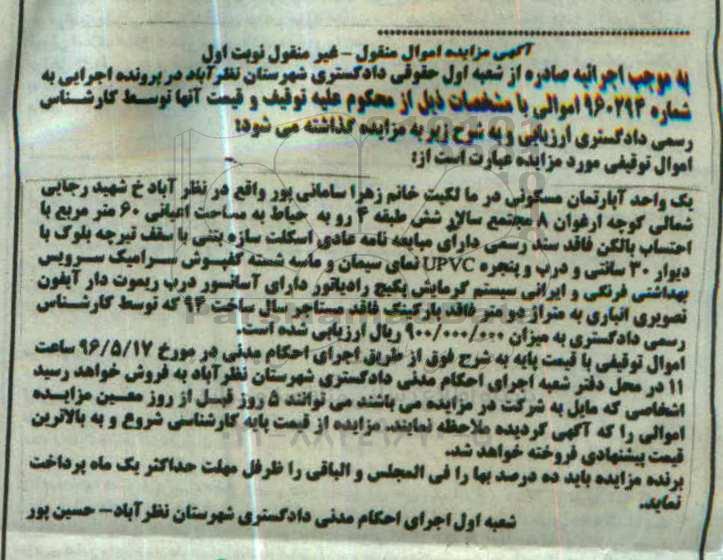 آگهی مزایده اموال منقول - غیر منقول نوبت اول
به موجب اجرائیه صادره از شعبه اول حقوقی دادگستری شهرستان نظرآباد در پرونده اجرایی به
شماره ۹۶۰۲۹۴ اموالی با مشخصات ذیل از محکوم علیه توقیف و قیمت آنها توسط کارشناس
رسمی دادگستری ارزیابی و به شرح زیر به مزایده گذاشته می شود:
اموال توقیفی مورد مزایده عبارت است از:
یک واحد آپارتمان مسکونی در ما لکیت خانم زهرا سامانی پور واقع در نظر آباد خ شهید رجایی
شمالی کوچه ارغوان ۸ مجتمع سالار شش طبقه ۴ رو به حیاط به مساحت اعیانی ۶۰ متر مربع با
احتساب بالکن فاقد سند رسمی دارای مبایعه نامه عادی اسکلت سازه بتنی با سقف تیرچه بلوک با
دیوار ۳۰ سانتی و درب و پنجره UPVC نمای سیمان و ماسه شسته کفپوش سرامیک سرویس
بهداشتی فرنگی و ایرانی سیستم گرمایش پکیج رادیاتور دارای آسانسور درب ریموت دار آیفون
تصویری انباری به متراژ دو متر فاقد پارکینگ فاقد مستاجر سال ساخت ۹۴ که توسط کارشناس
رسمی دادگستری به میزان ۹۰۰/۰۰۰/۰۰۰ ریال ارزیابی شده است.
اموال توقیفی با قیمت پایه به شرح فوق از طریق اجرای احکام مدنی در مورخ ۹۶/۵/۱۷ ساعت
۱۱ در محل دفتر شعبه اجرای احکام مدنی دادگستری شهرستان نظرآباد به فروش خواهد رسید
اشخاصی که مایل به شرکت در مزایده می باشند می توانند ۵ روز قبل از روز معین مزایده
اموالی را که آگهی گردیده ملاحظه نمایند. مزایده از قیمت پایه کارشناسی شروع و به بالاترین
قیمت پیشنهادی فروخته خواهد شد.
برنده مزایده باید ده درصد بها را فی المجلس و الباقی را ظرفل مهلت حداکثر یک ماه پرداخت
نماید.
شعبه اول اجرای احکام مدنی دادگستری شهرستان نظرآباد - حسین پور